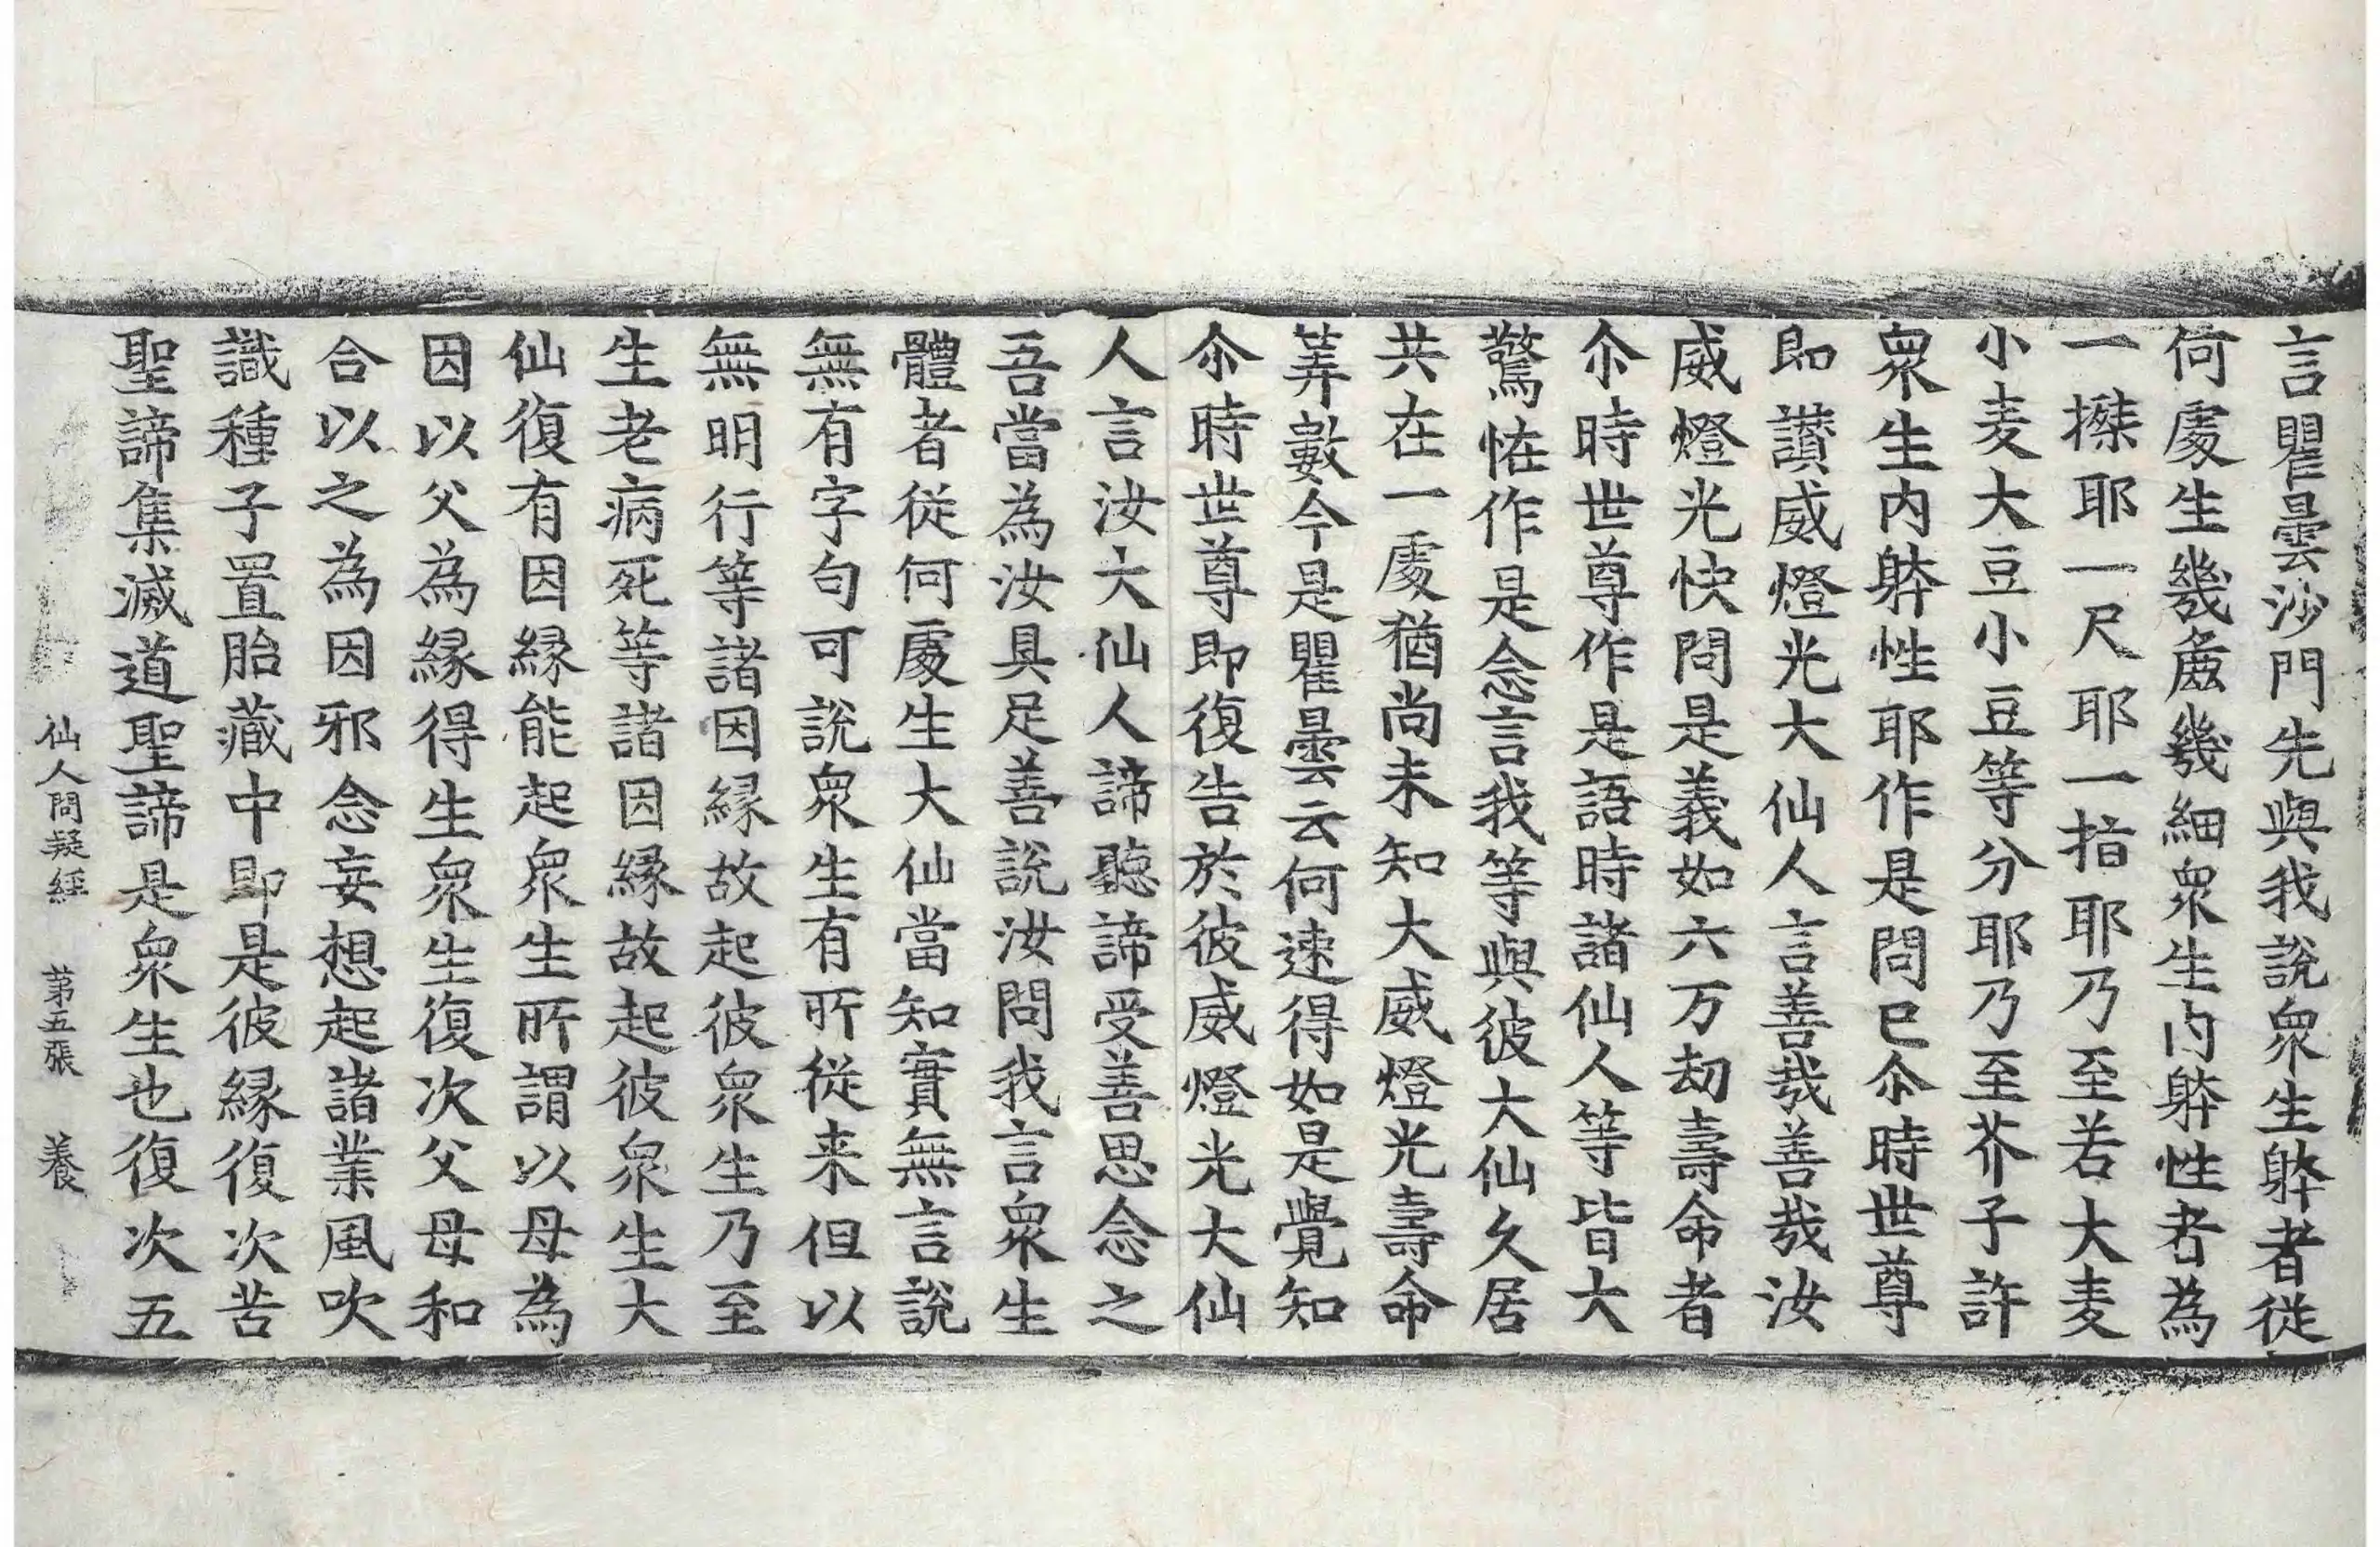 言瞿曇沙門先與我說衆生躰者從
何處生幾麁幾細衆生內躰性者為
一搩耶一尺耶一指耶乃至若大麦
小麦大豆小豆等分耶乃至芥子許
衆生內躰性耶作是問已尒時世尊
即讃威燈光大仙人言善哉善哉汝
威燈光快問是義如六万劫壽命者
尒時世尊作是語時諸仙人等皆大
驚恠作是念言我等與彼大仙久居
共在一處猶尚未知大威燈光壽命
筭數今是瞿曇云何速得如是覺知
尒時世尊即復告於彼威燈光大仙
人言汝大仙人諦聽諦受善思念之
吾當為汝具足善說汝問我言衆生
體者從何處生大仙當知實無言說
無有字句可說衆生有所從来但以
無明行等諸因縁故起彼衆生乃至
生老病死等諸因縁故起彼衆生大
仙復有因縁能起衆生所謂以母為
因以父為縁得生衆生復次父母和
合以之為因邪念妄想起諸業風吹
識種子置胎藏中即是彼縁復次苦
聖諦集滅道聖諦是衆生也復次五
仙人問疑經 苐五張 養